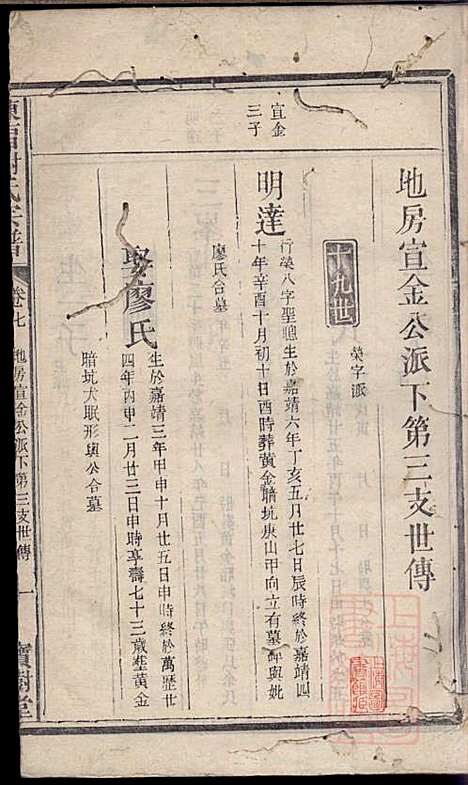 地房宣金公派下第三支世傳
十九世
榮字派
宣金
三子
明達
行榮八字聖聰生於嘉靖六年丁亥五月廿七日辰時終於嘉靖四
十年辛酉十月初十日酉時葬黃金暗坑庚山甲向立有墓碑與妣
廖氏合墓
娶廖氏
生於嘉靖三年甲申十月廿五日申時終於萬歷廿
四年丙申二月廿三日申時享壽七十三歲塟黃金
暗坑犬眠形與公合墓
卷七
地房宣金公派下第三支世傳
一
寶樹堂